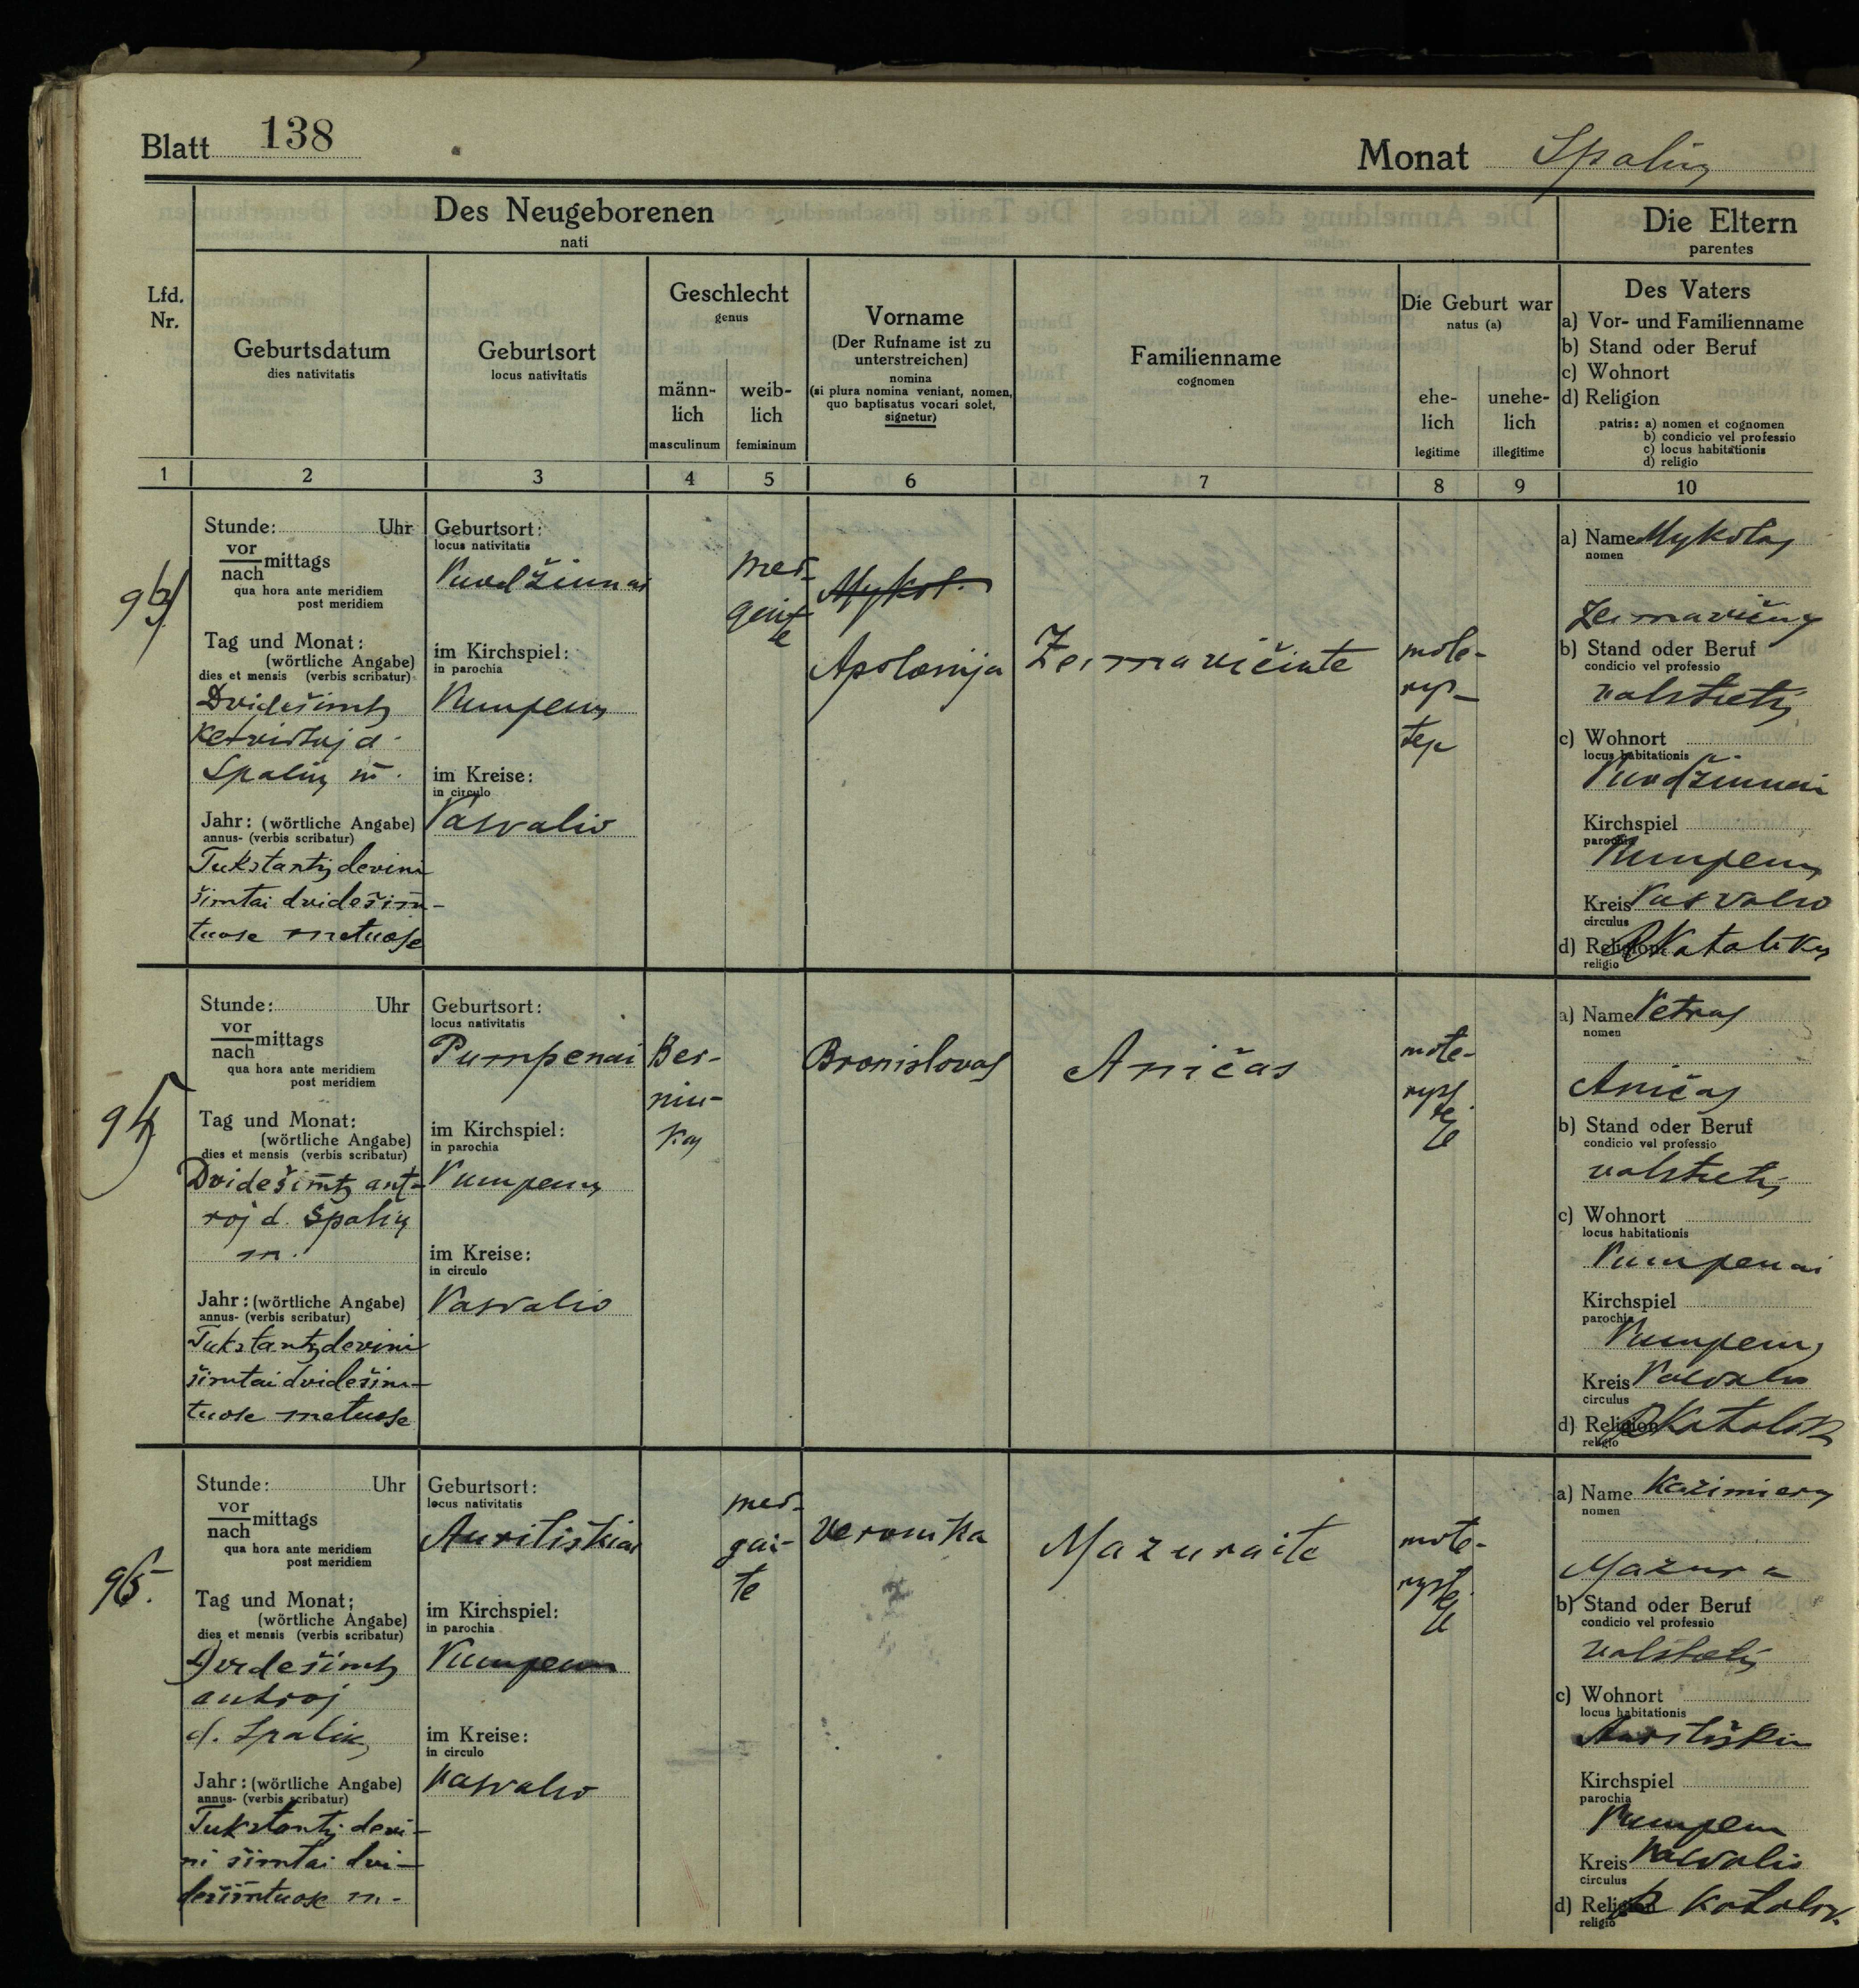 Blatt 138
Monat Spalių
Des Neugeborenen
nati
Die Eltern
parentes
Lfd.
Nr.
Geburtsdatum
dies nativitatis
Geburtsort
locus nativitatis
Geschlecht
genus
männ-
lich
masculinum
weib-
lich
femininum
Vorname
(Der Rufname ist zu
unterstreichen)
nomina
(si plura nomina veniant, nomen,
quo baptisatus vocari solet,
signetur)
Familienname
cognomen
Die Geburt war
natus (a)
ehe-
lich
legitime
unehe-
lich
illegitime
Des Vaters
a) Vor- und Familienname
b) Stand oder Beruf
c) Wohnort
d) Religion
patris: a) nomen et cognomen
b) condicio vel professio
c) locus habitationis
d) religio
1 2 3 4 5 6 7 8 9 10
Stunde: Uhr
vor
nach mittags
qua hora ante meridiem
post meridiem
Tag und Monat:
(wörtliche Angabe)
dies et mensis (verbis scribatur)
Dvidešimtų
ketvirtoj d.
Spalių m.
Jahr: (wörtliche Angabe)
annus- (verbis scribatur)
Tukstantį devini
šimtai dvidešim-
tuose metuose
Geburtsort:
locus nativitatis
im Kirchspiel:
in parochia
Pumpenų
im Kreise:
in circulo
Pasvalio
mer-
gaitė
Mykol.
Apolonija
mote-
rys-
tėje
a) Name Mykolas
nomen
b) Stand oder Beruf
condicio vel professio
valstietis
c) Wohnort
locus habitationis
Kirchspiel
parochia
Pumpenų
Kreis Pasvalio
circulus
d) Religion R Katalikų
religio
Stunde: Uhr
vor
nach mittags
qua hora ante meridiem
post meridiem
Tag und Monat:
(wörtliche Angabe)
dies et mensis (verbis scribatur)
Dvidešimtų ant-
roj d. Spalių
m.
Jahr: (wörtliche Angabe)
annus- (verbis scribatur)
Tukstantį devini
šimtai dvidešim-
tuose metuose
Geburtsort:
locus nativitatis
Pumpenai
im Kirchspiel:
in parochia
Pumpenų
im Kreise:
in circulo
Pasvalio
Ber-
niu-
kas
Bronislovas
Aničas
mote-
ryst
ėje
a) Name Petras
nomen
Aničas
b) Stand oder Beruf
condicio vel professio
valstietis
c) Wohnort
locus habitationis
Pumpenai
Kirchspiel
parochia
Pumpenų
Kreis Pasvalio
circulus
d) Religion R Katalik
religio
96.
Stunde: Uhr
vor
nach mittags
qua hora ante meridiem
post meridiem
Tag und Monat:
(wörtliche Angabe)
dies et mensis (verbis scribatur)
Dvidešimtų
antroj
d. Spalių
Jahr: (wörtliche Angabe)
annus- (verbis scribatur)
Tukstantį devi-
ni šimtai dvi-
dešimtuose m.
Geburtsort:
locus nativitatis
im Kirchspiel:
in parochia
Pumpenų
im Kreise:
in circulo
Pasvalio
mer-
gai-
tė
Veronika
Mazuraite
mote-
rystė
je
a) Name Kazimieras
nomen
Mazura
b) Stand oder Beruf
condicio vel professio
valstietis
c) Wohnort
locus habitationis
Kirchspiel
parochia
Pumpenų
Kreis Pasvalio
circulus
d) Religion R Katalik
religio